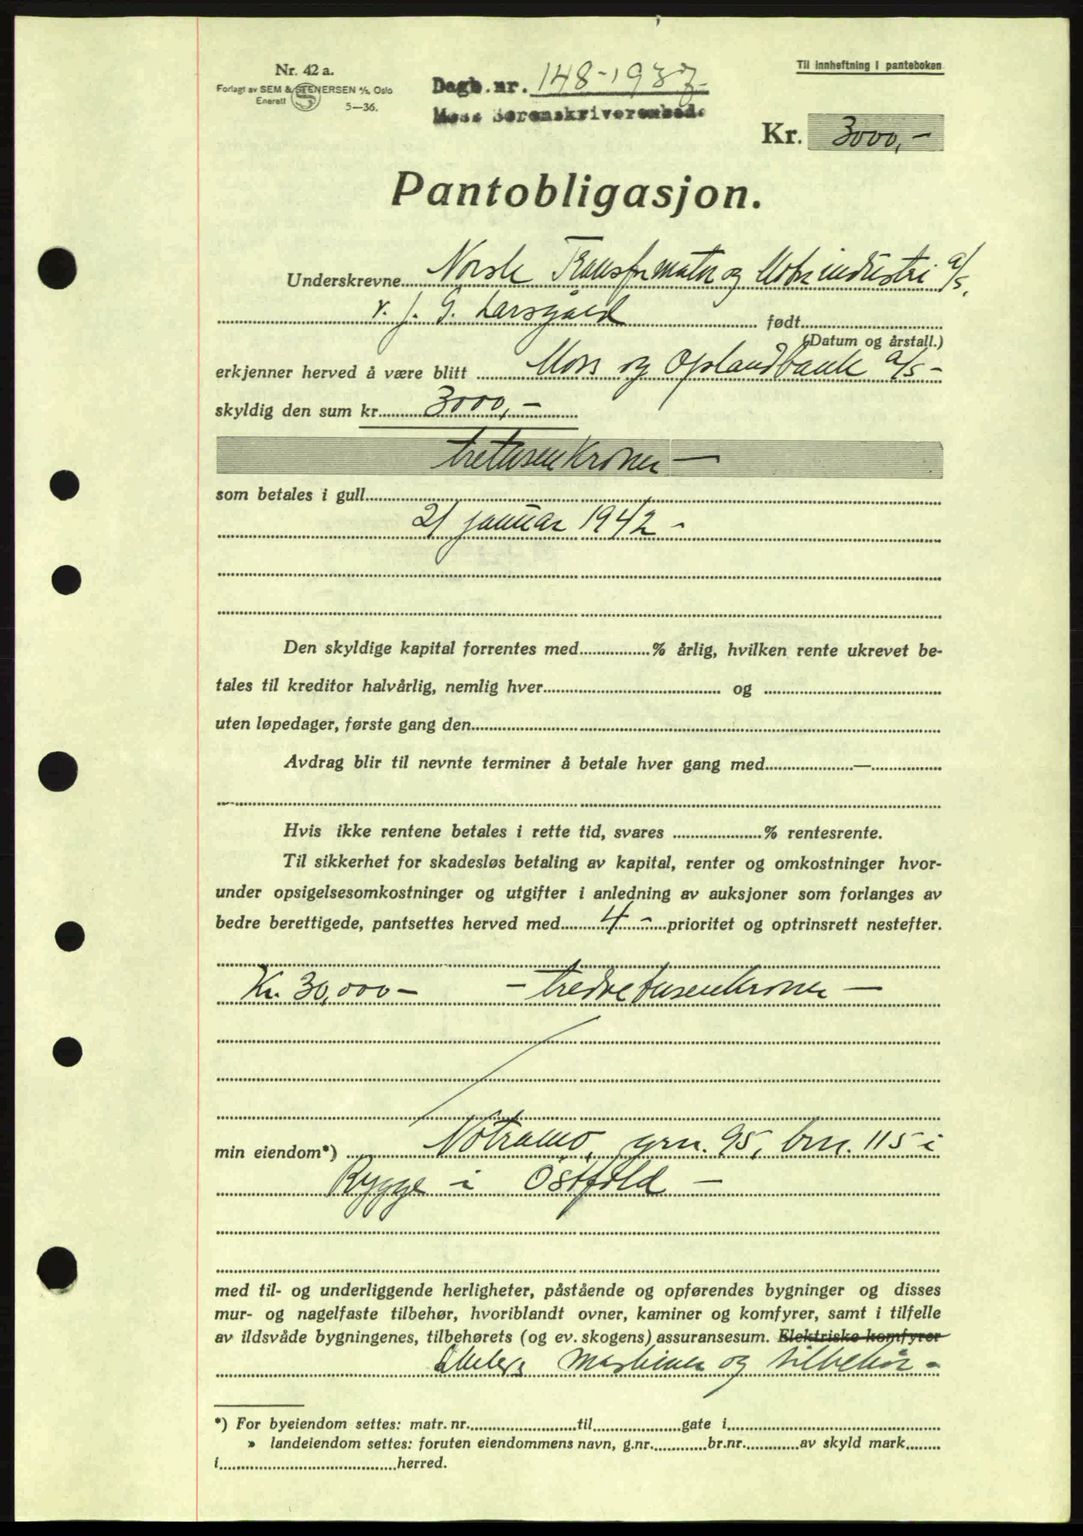 Nr. 42 a.
Forlagt av SEM & STENERSEN A/S, Oslo
Enerett
5—36.
Dagb.nr. 148-1937
Moss Sorenskriverembede
Til innheftning i panteboken
Kr. 3000,-
Pantobligasjon.
Underskrevne Norsk Transformator og Motorindustri a/s,
v. J. G. Larsgård født
(Datum og årstall.)
erkjenner herved å være blitt Moss og Oplandbank a/s -
skyldig den sum kr. 3000,-
tretusen kroner -
som betales i gull
21 januar 1942 -
Den skyldige kapital forrentes med % årlig, hvilken rente ukrevet be-
tales til kreditor halvårlig, nemlig hver og
uten løpedager, første gang den
Avdrag blir til nevnte terminer å betale hver gang med —
Hvis ikke rentene betales i rette tid, svares % rentesrente.
Til sikkerhet for skadesløs betaling av kapital, renter og omkostninger hvor-
under opsigelsesomkostninger og utgifter i anledning av auksjoner som forlanges av
bedre berettigede, pantsettes herved med 4 - prioritet og optrinsrett nestefter.
Kr. 30,000 - - tredve tusen kroner -
min eiendom*) Notramo, grn. 95, brn. 115 i
Rygge i Östfold -
med til- og underliggende herligheter, påstående og opførendes bygninger og disses
mur- og nagelfaste tilbehør, hvoriblandt ovner, kaminer og komfyrer, samt i tilfelle
av ildsvåde bygningenes, tilbehørets (og ev. skogens) assuransesum. Elektriske komfyrer
maskiner og tilbehör -
*) For byeiendom settes: matr. nr. til gate i
» landeiendom settes: foruten eiendommens navn, g.nr. br.nr. av skyld mark
i herred.